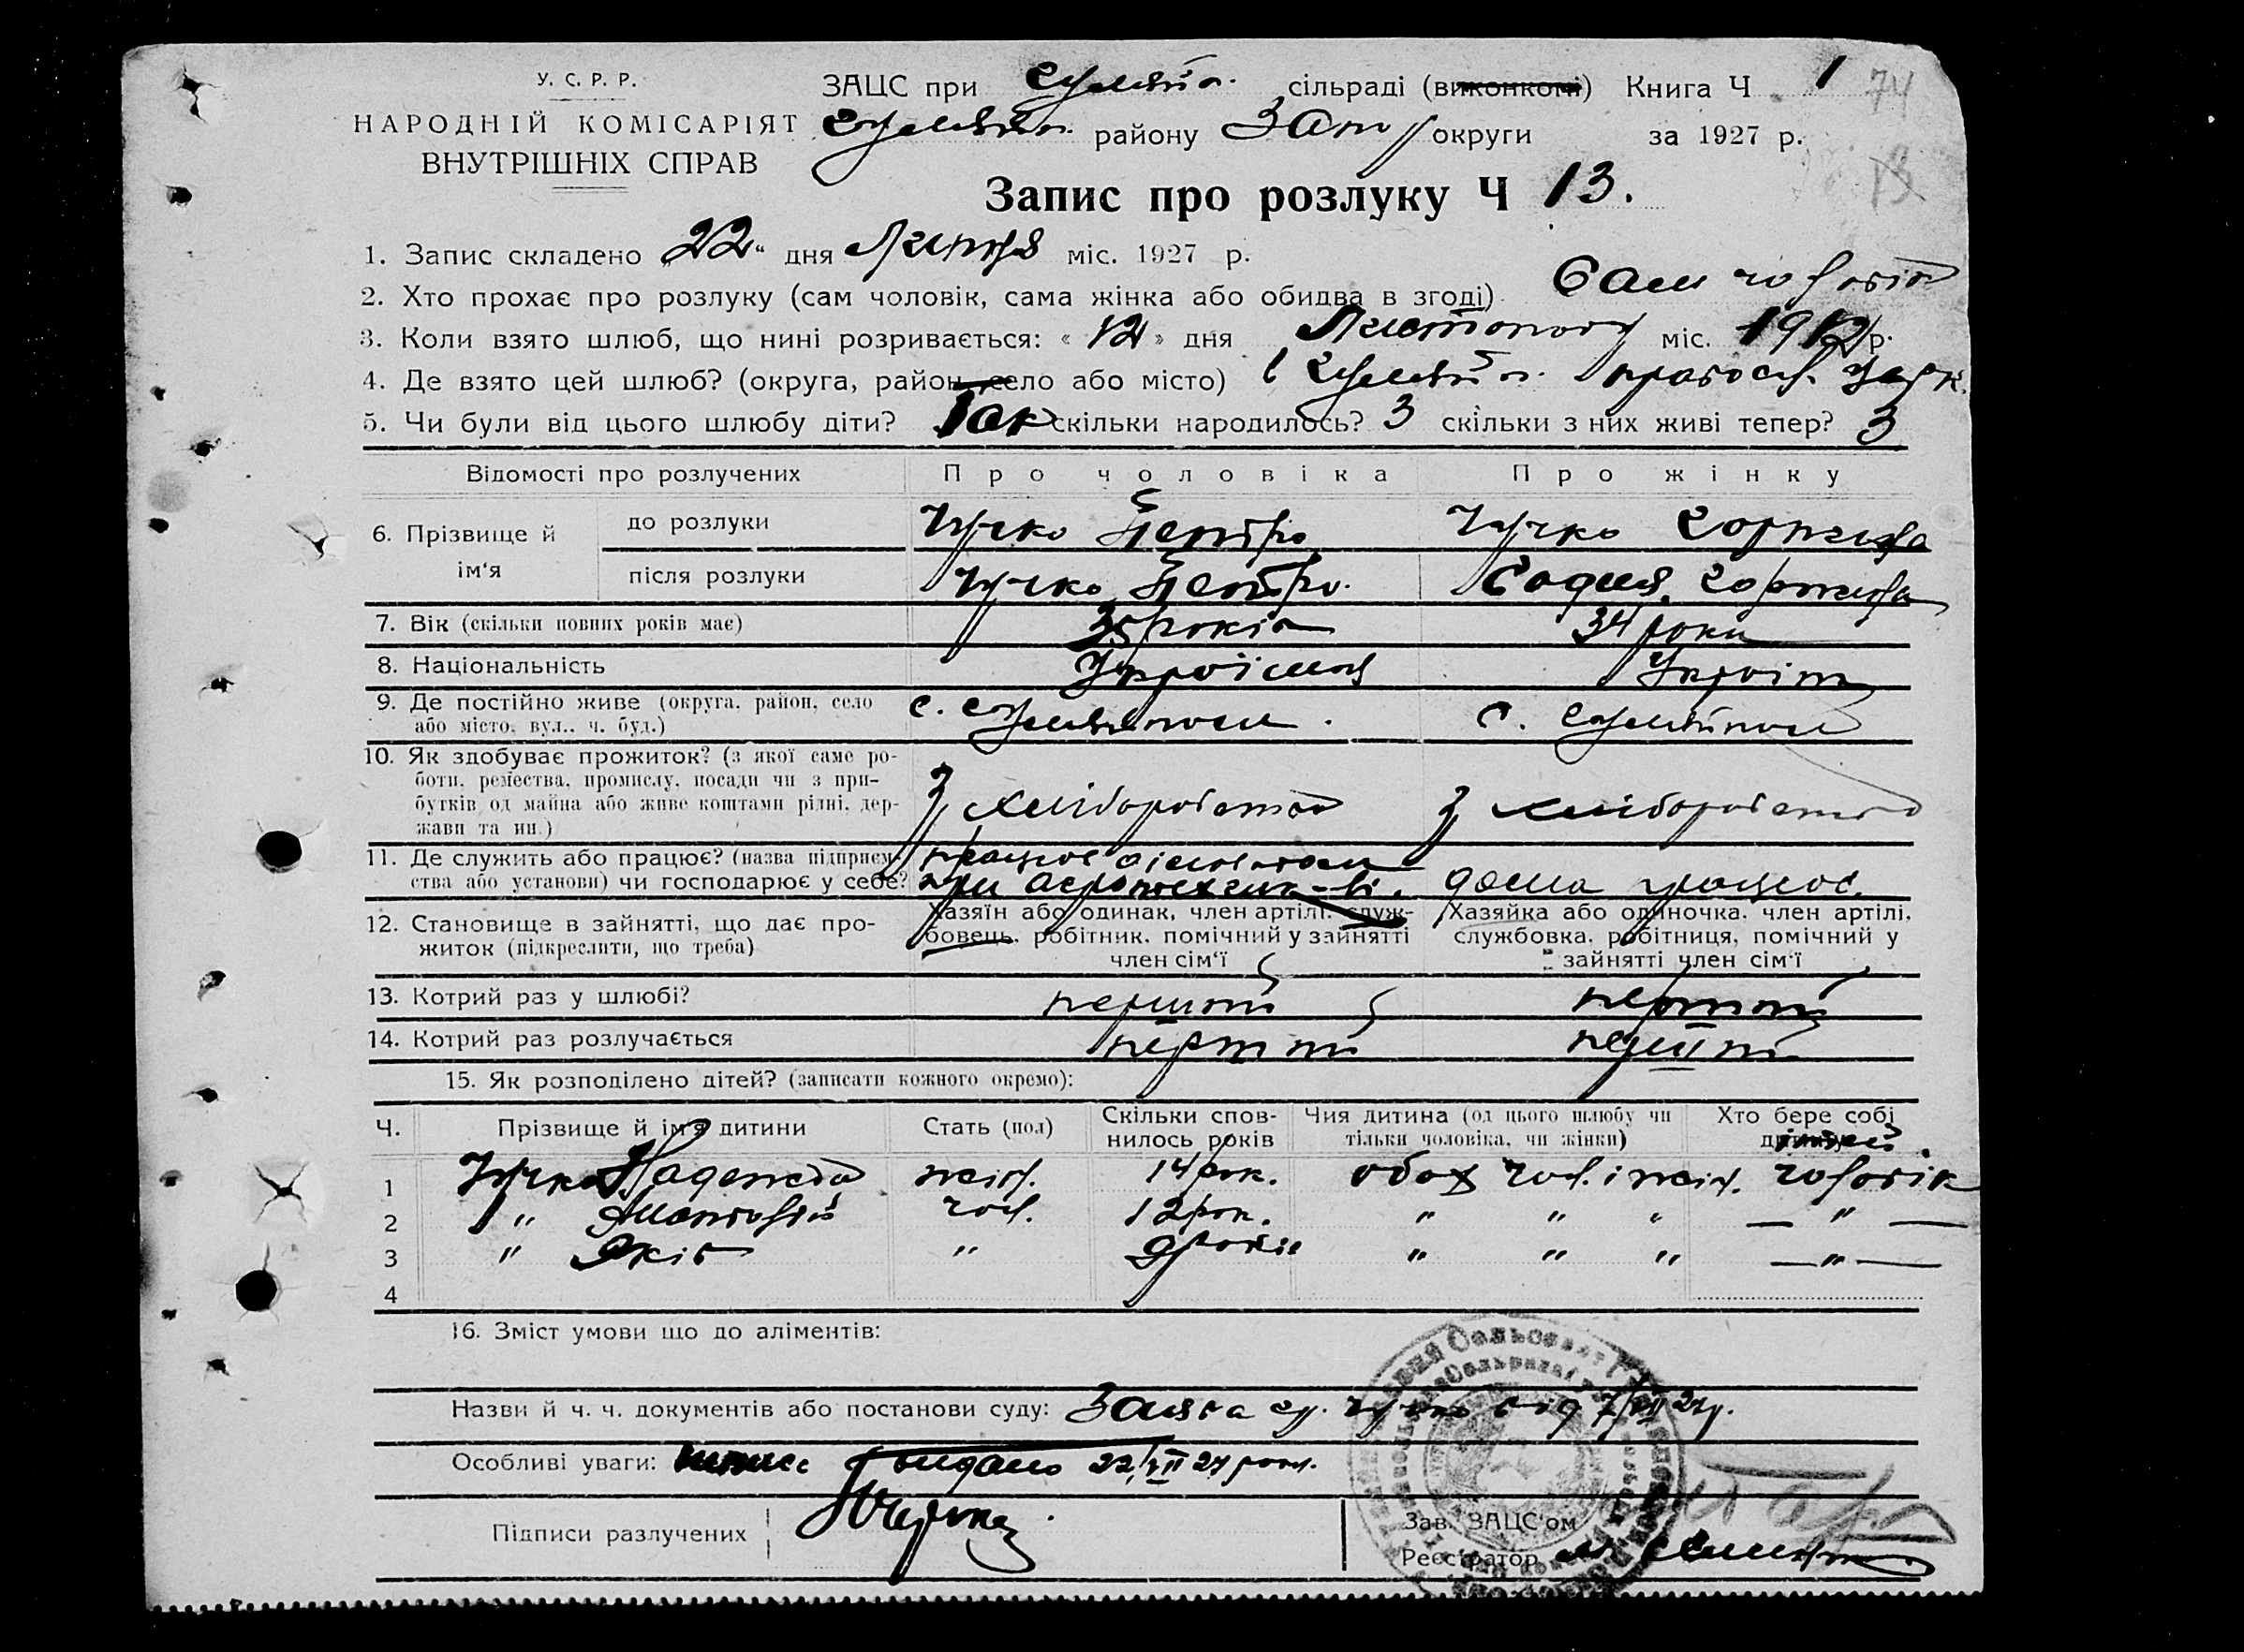 У. С. Р. Р.
НАРОДНІЙ КОМІСАРІЯТ
ВНУТРІШНІХ СПРАВ
ЗАЦС при Гуляйп. сільраді (виконкомі) Книга Ч 1 74
Гуляйп. району Зап. округи за 1927 р.
Запис про розлуку Ч 13.
1. Запис складено „22“ дня Липня міс. 1927 р.
2. Хто прохає про розлуку (сам чоловік, сама жінка або обидва в згоді) Сам чоловік
3. Коли взято шлюб, що нині розривається: «12» дня Листопад міс. 1912 р.
4. Де взято цей шлюб? (округа, район, село або місто) в Гуляйп. правосл. церк.
5. Чи були від цього шлюбу діти? Так скільки народилось? 3 скільки з них живі тепер? 3
Відомості про розлучених Про чоловіка Про жінку
6. Прізвище й ім'я
до розлуки Чучко Петро Чучко
після розлуки Чучко Петро.
7. Вік (скільки повних років має) 35 років 34 роки
8. Національність Україн
9. Де постійно живе (округа, район, село
або місто, вул., ч. буд.) с. Гуляйполе. с. Гуляйполе
10. Як здобуває прожиток? (з якої саме ро-
боти, ремества, промислу, посади чи з при-
бутків од майна або живе коштами рідні, дер-
жави та ин.) З хліборобства З хліборобства
11. Де служить або працює? (назва підприєм-
ства або установи) чи господарює у себе? працює при дома працює.
12. Становище в зайнятті, що дає про-
житок (підкреслити, що треба)
Хазяїн або одинак, член артілі, служ-
бовець, робітник, помічний у зайнятті
член сім'ї
Хазяйка або одиночка, член артілі,
службовка, робітниця, помічний у
зайнятті член сім'ї
13. Котрий раз у шлюбі? перший перший
14. Котрий раз розлучається перший перший
15. Як розподілено дітей? (записати кожного окремо):
Ч. Прізвище й ім'я дитини Стать (пол) Скільки спов-
нилось років Чия дитина (од цього шлюбу чи
тільки чоловіка, чи жінки) Хто бере собі
дитину
1 Чучко Надежда жін. 14 рок. обох чол. і жін. чоловік
2 " чол. 12 рок. " " " — " —
3 " Яків " 9 років " " " — " —
4
16. Зміст умови що до аліментів:
Назви й ч. ч. документів або постанови суду: Заява гр. Чучко від 7/VII 27 р.
Особливі уваги: видано 22/VII 27 рок.
Підписи разлучених
Зав. ЗАЦС'ом
Реєстратор